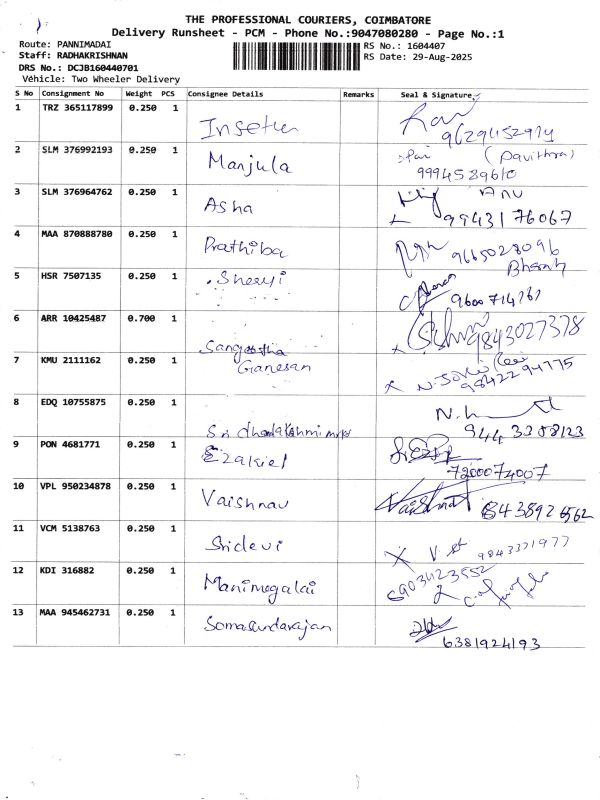 THE PROFESSIONAL COURIERS, COIMBATORE
Delivery Runsheet - PCM - Phone No.:9047080280 - Page No.:1
Route: PANNIMADAI
RS No.: 1604407
Staff: RADHAKRISHNAN
RS Date: 29-Aug-2025
DRS No.: DCJB160440701
Vehicle: Two Wheeler Delivery
S No Consignment No Weight PCS Consignee Details Remarks Seal & Signature
1 TRZ 365117899 0.250 1
9629452974
2 SLM 376992193 0.250 1 Manjula (Pavithra)
9994589610
3 SLM 376964762 0.250 1 Asha Anu
9943176067
4 MAA 870888780 0.250 1 Prathiba 9665028096
Bharath
5 HSR 7507135 0.250 1
9600714767
6 ARR 10425487 0.700 1 9843027378
Sangeetha
7 KMU 2111162 0.250 1 Ganesan
9842294775
8 EDQ 10755875 0.250 1
Sri
9443358123
9 PON 4681771 0.250 1 Ezakiel
7200074007
10 VPL 950234878 0.250 1 Vaishnav Vaishnav 8438926562
11 VCM 5138763 0.250 1 Sridevi 9843371977
12 KDI 316882 0.250 1 Manimegalai 6903423552
13 MAA 945462731 0.250 1 Somasundarajan
6381924193